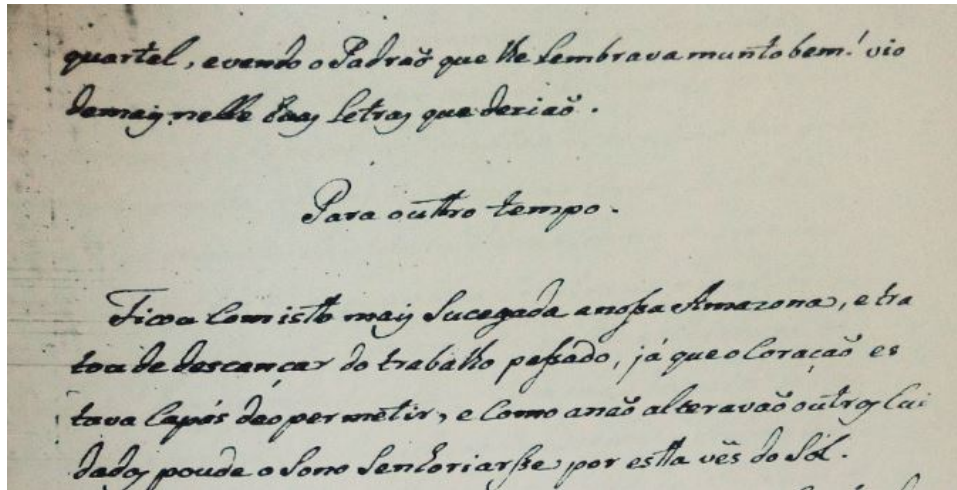 quartel, evendo o Padraõ que lhe Lembrava munto bem! vio
demais nelle huas letras que deziaõ.
Para outro tempo.
Ficou Com isto mais Sucegada anossa Amazona, etra
tou de descançar do trabalho passado, já que o Coraçaõ es
tava Capás deo permetir, e Como anaõ alteravaõ outros Cui
dados poude o Sono Senhoriarsse por esta vês do Sól.